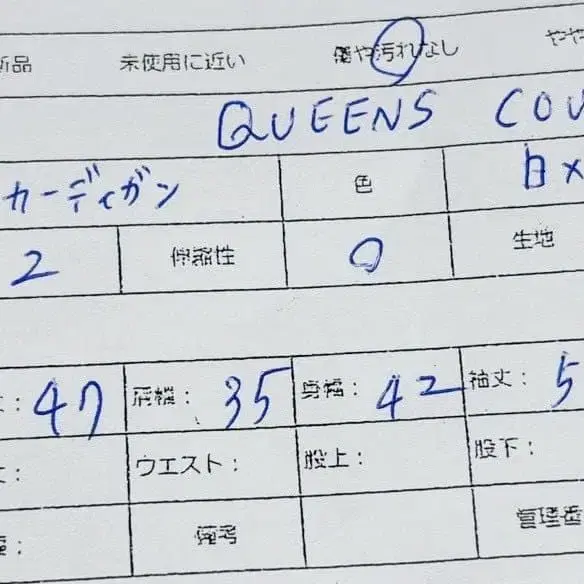 新品 未使用に近い 傷や汚れなし やや
QUEENS COU
カーディガン 色 白×
2 伸縮性 0 生地
丈: 47 肩幅: 35 身幅: 42 袖丈: 5
丈: ウエスト: 股上: 股下:
幅: 備考 管理番